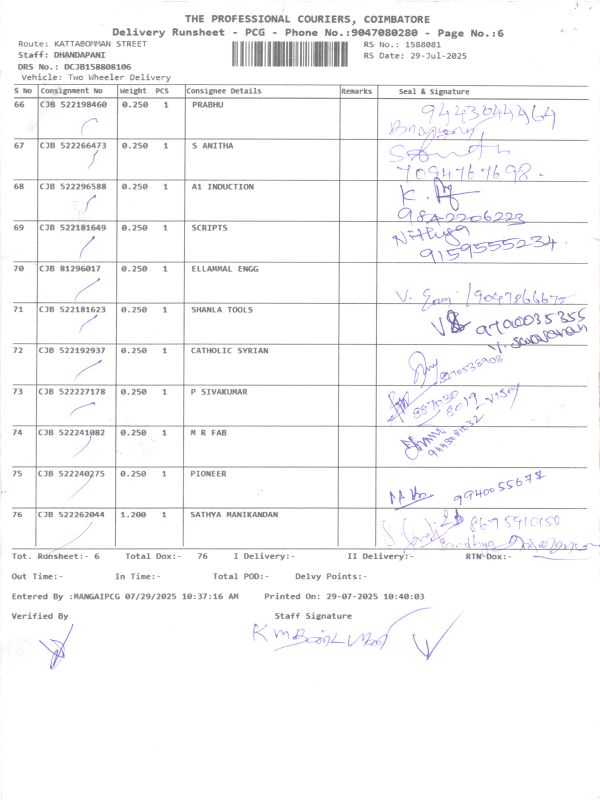 THE PROFESSIONAL COURIERS, COIMBATORE
Delivery Runsheet - PCG - Phone No.:9047080280 - Page No.:6
Route: KATTABOMMAN STREET
RS No.: 1588081
Staff: DHANDAPANI
RS Date: 29-Jul-2025
DRS No.: DCJB158808106
Vehicle: Two Wheeler Delivery
S No Consignment No Weight PCS Consignee Details Remarks Seal & Signature
66 CJB 522198460 0.250 1 PRABHU
67 CJB 522266473 0.250 1 S ANITHA
7094767698.
68 CJB 522296588 0.250 1 A1 INDUCTION
9842206223
69 CJB 522181649 0.250 1 SCRIPTS Nithya
9159555234.
70 CJB 81296017 0.250 1 ELLAMMAL ENGG
71 CJB 522181623 0.250 1 SHANLA TOOLS
9790035355
V. Saravanan
72 CJB 522192937 0.250 1 CATHOLIC SYRIAN
73 CJB 522227178 0.250 1 P SIVAKUMAR
887030
8019 Vijay
74 CJB 522241082 0.250 1 M R FAB
75 CJB 522240275 0.250 1 PIONEER
76 CJB 522262044 1.200 1 SATHYA MANIKANDAN
Tot. Runsheet:- 6 Total Dox:- 76 I Delivery:- II Delivery:- RTN Dox:-
Out Time:- In Time:- Total POD:- Delvy Points:-
Entered By :MANGAIPCG 07/29/2025 10:37:16 AM Printed On: 29-07-2025 10:40:03
Verified By Staff Signature